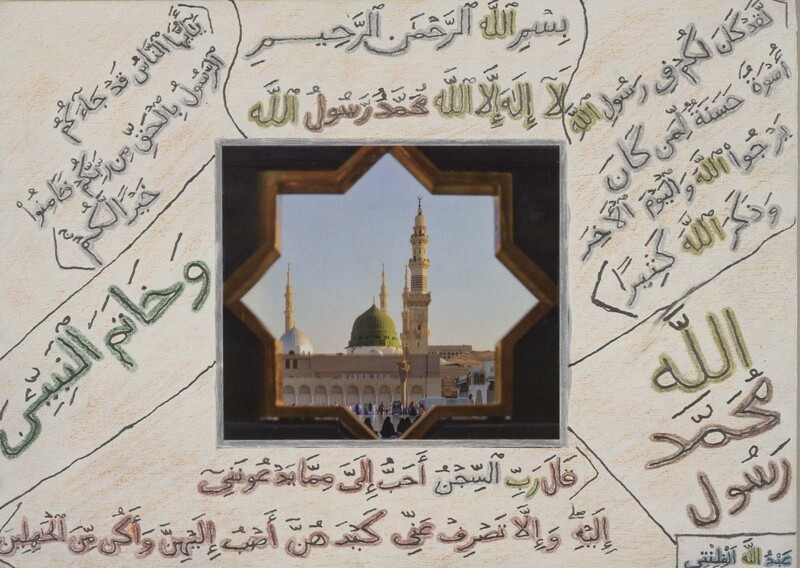 بِسْمِ اللَّهِ الرَّحْمَٰنِ الرَّحِيمِ
لَا إِلَٰهَ إِلَّا اللَّهُ مُحَمَّدٌ رَسُولُ اللَّهِ
لَّقَدْ كَانَ لَكُمْ فِي رَسُولِ اللَّهِ
أُسْوَةٌ حَسَنَةٌ لِّمَن كَانَ
يَرْجُوا اللَّهَ وَالْيَوْمَ الْآخِرَ
وَذَكَرَ اللَّهَ كَثِيرًا
يَٰأَيُّهَا النَّاسُ قَدْ جَاءَكُمُ
الرَّسُولُ بِالْحَقِّ مِن رَّبِّكُمْ فَـَٔامِنُوا
خَيْرًا لَّكُمْ
وَخَاتَمَ النَّبِيِّنَ
اللَّه
مُحَمَّد
رَسُول
قَالَ رَبِّ السِّجْنُ أَحَبُّ إِلَيَّ مِمَّا يَدْعُونَنِي
إِلَيْهِ وَإِلَّا تَصْرِفْ عَنِّي كَيْدَهُنَّ أَصْبُ إِلَيْهِنَّ وَأَكُن مِّنَ الْجَٰهِلِينَ
عَبْدُ اللَّه